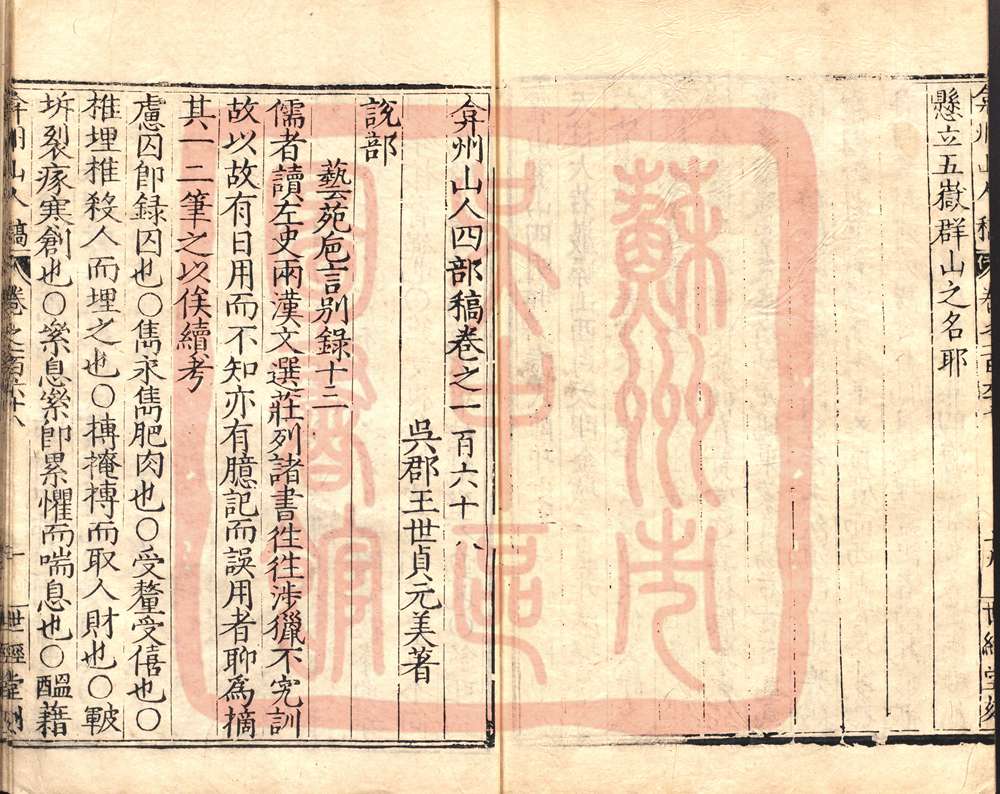 懸立五嶽群山之名耶
弇州山人四部稿卷之一百六十八
吳郡王世貞元美著
說部
藝苑巵言別錄十三
儒者讀左史兩漢文選莊列諸書徃徃涉獵不究訓
故以故有日用而不知亦有臆記而誤用者聊爲摘
其一二筆之以俟續考
慮囚卽録囚也〇雋永雋肥肉也〇受釐受僖也〇
椎埋椎殺人而埋之也〇摶掩摶而取人財也〇皸
坼裂瘃寒創也〇絫息絫卽累懼而喘息也〇醞藉
弇州山人稿 卷之一百六十八
世經堂刻
蘇州市
古舊